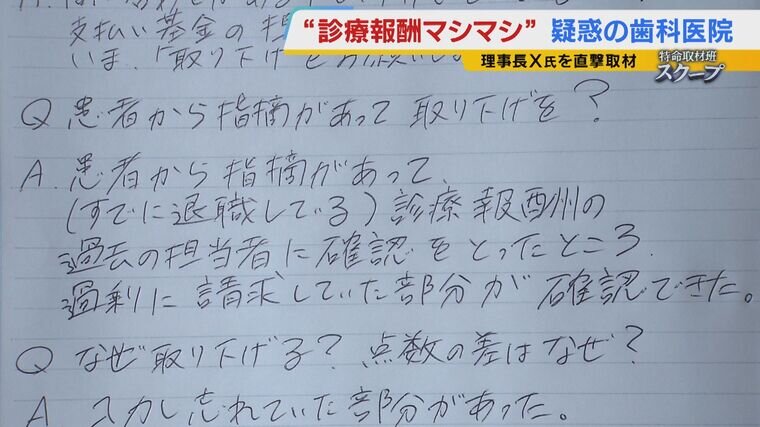 “診療報酬マシマシ” 疑惑の歯科医院
理事長X氏を直撃取材
特命取材班
スクープ
支払い基金の
いま、「取り下げ」を
Q 患者から指摘があって 取り下げを?
A. 患者から指摘があって、
(すでに退職している)診療報酬の
過去の担当者に確認をとったところ、
過剰に請求していた部分が確認できた。
Q なぜ取り下げる? 点数の差はなぜ?
A 入力し忘れていた部分があった。